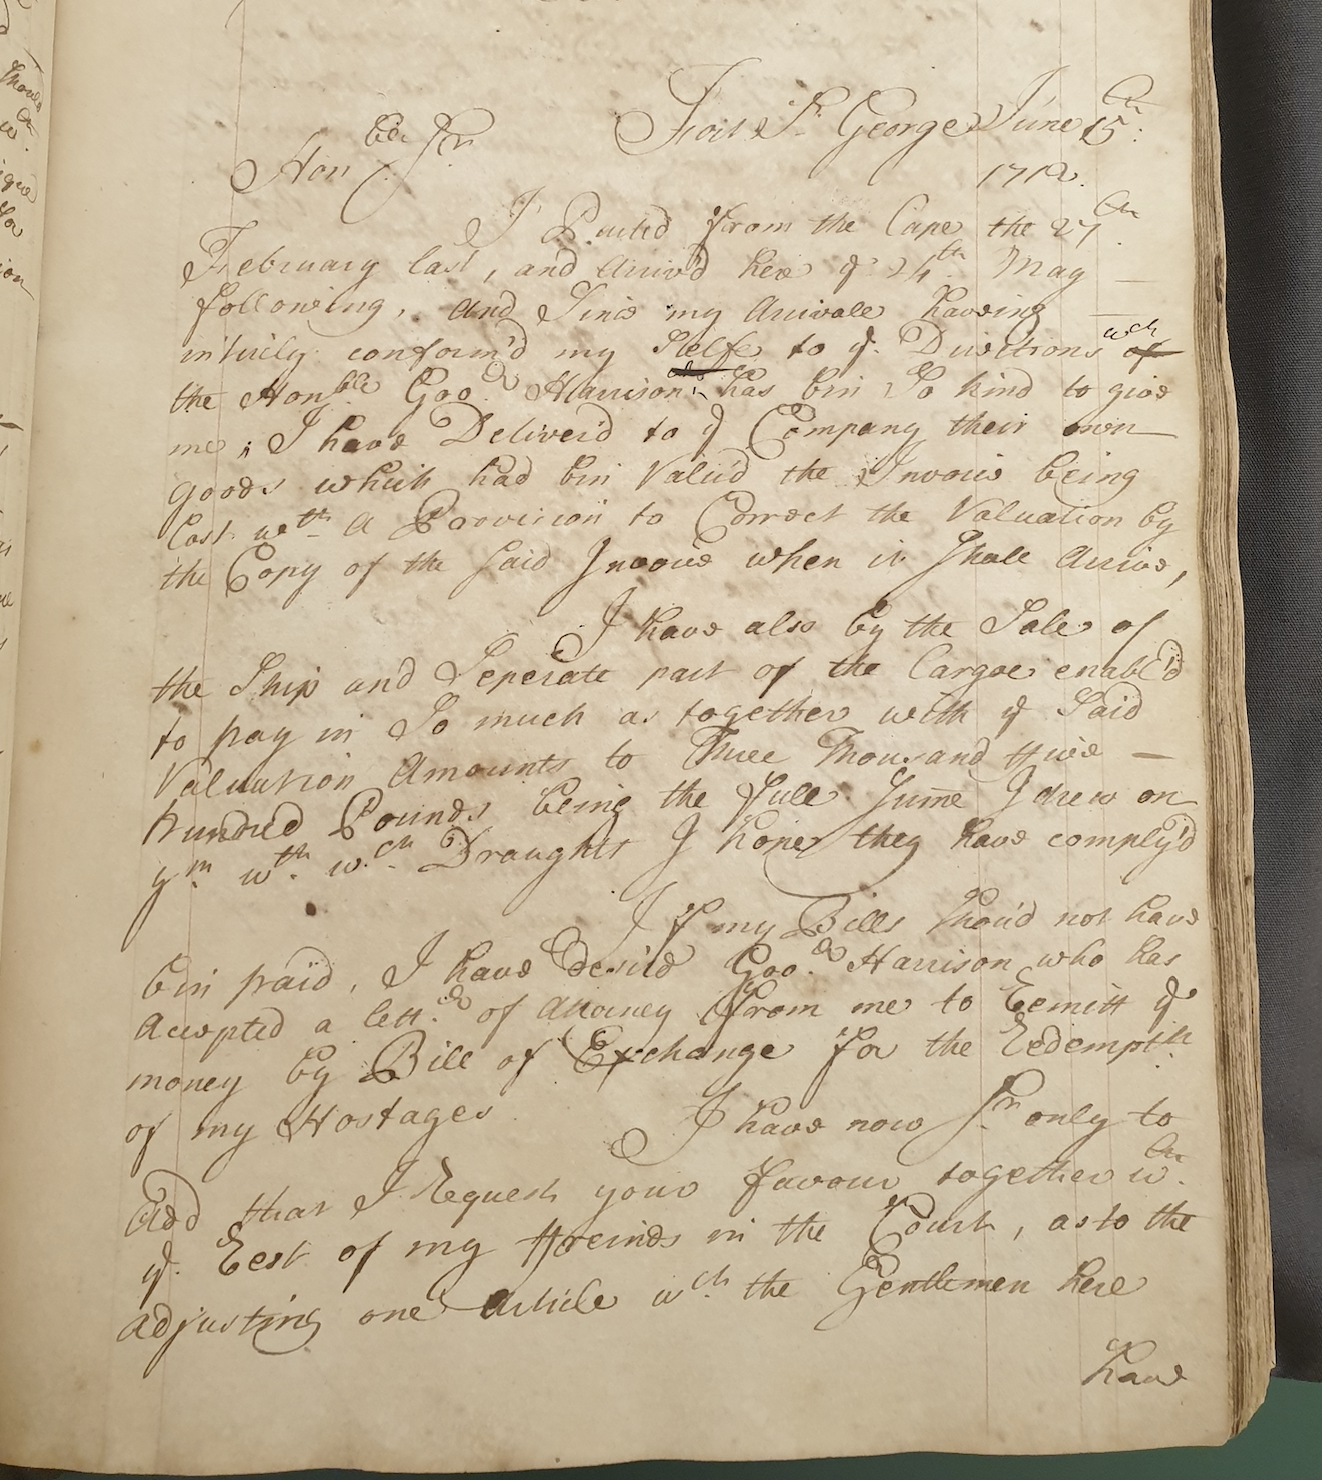 Fort St. George June 15th:
Honble Sr
1712.
I Parted from the Cape the 27th.
February last, and Arriv'd here ye 24th. May —
following, And Since my Arrivall haveing —
intirely conform'd my Selfe to ye. Directions wch of
the Honble Govr. Harrison has bin So kind to give
me; I have Deliver'd to ye Company their own —
goods which had bin Valu'd the Invoice being
Lost wth A Provision to Correct the Valuation by
the Copy of the said Invoice when it Shall Arrive,
I have also by the Sale of
the Ship and Seperate part of the Cargoe enabl'd
to pay in So much as together with ye Said
Valuation Amounts to Three Thousand five —
hundred Pounds being the full Sume I drew on
ym. wth. wch. Draughts I hope they have comply'd
If my Bills Shou'd not have
bin paid, I have desir'd Govr. Harrison who has
Accepted a lettr. of Attorney from me to Remitt ye
money by Bill of Exchange for the Redemptn.
of my Hostages
I have now Sr. only to
Add that I Request your favour together wth.
ye. Rest of my ffreinds in the Court, as to the
adjusting one Article wch. the Gentlemen here
have